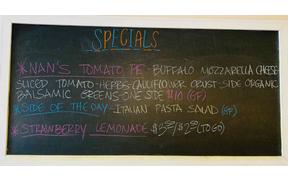 SPECIALS
*NAN'S TOMATO PIE- BUFFALO MOZZARELLA CHEESE
SLICED TOMATO-HERBS-CAULIFLOWER CRUST-SIDE ORGANIC
BALSAMIC GREENS-ONE SIZE $10 (GF)
*SIDE OF THE DAY-ITALIAN PASTA SALAD (GF)
*STRAWBERRY LEMONADE $ /$2.50 (TO GO)